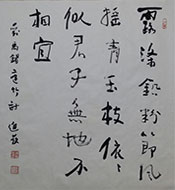 露滌鉛粉節風
搖青玉枝依〻
似君子無地不
相宜
劉禹錫庭竹詩